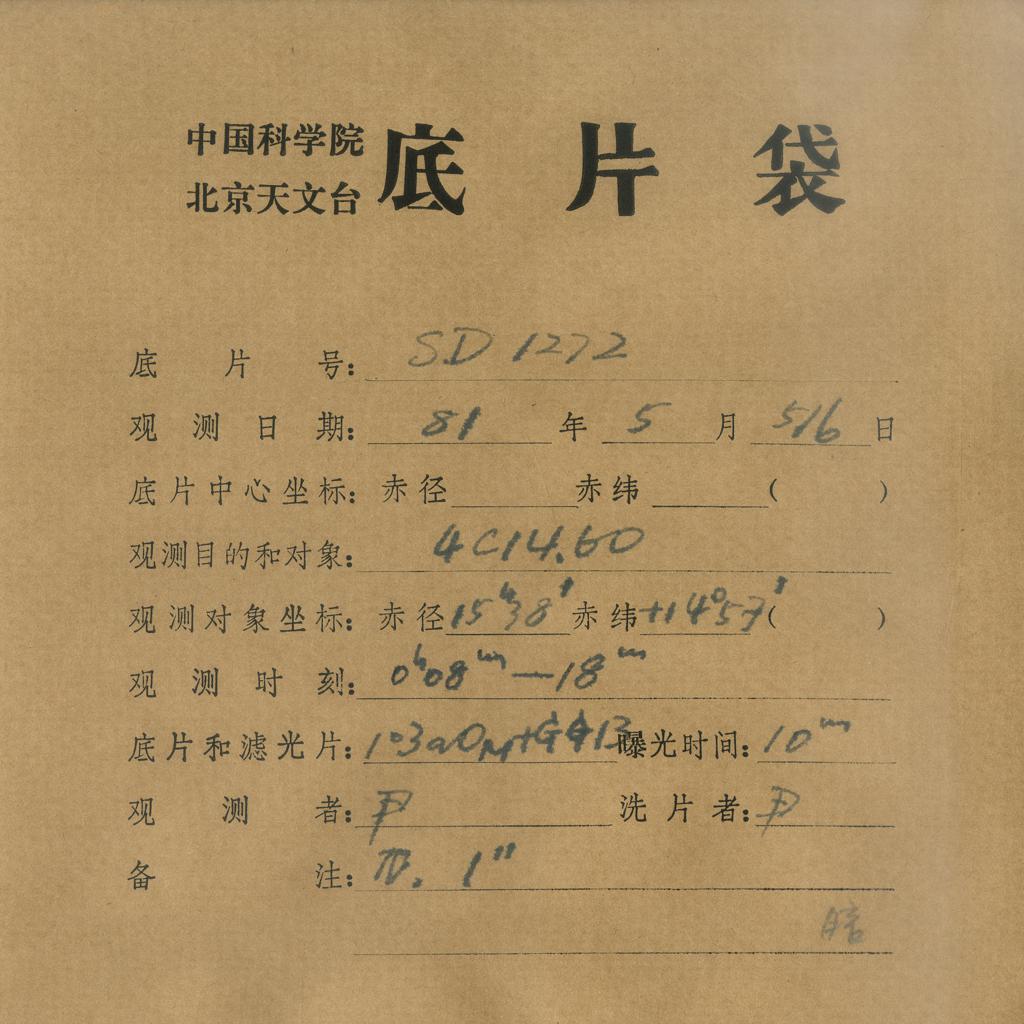 中国科学院
北京天文台
底片袋
底片号: SD 1272
观测日期: 81 年 5 月 5/6 日
底片中心坐标: 赤径 赤纬 ( )
观测目的和对象: 4C14.60
观测对象坐标: 赤径 15ʰ38' 赤纬 +14°57' ( )
观测时刻: 0ʰ08ᵐ—18ᵐ
底片和滤光片: 103aO +GG13 曝光时间: 10ᵐ
观测者: 尹 洗片者: 尹
备注: IV. 1"
暗